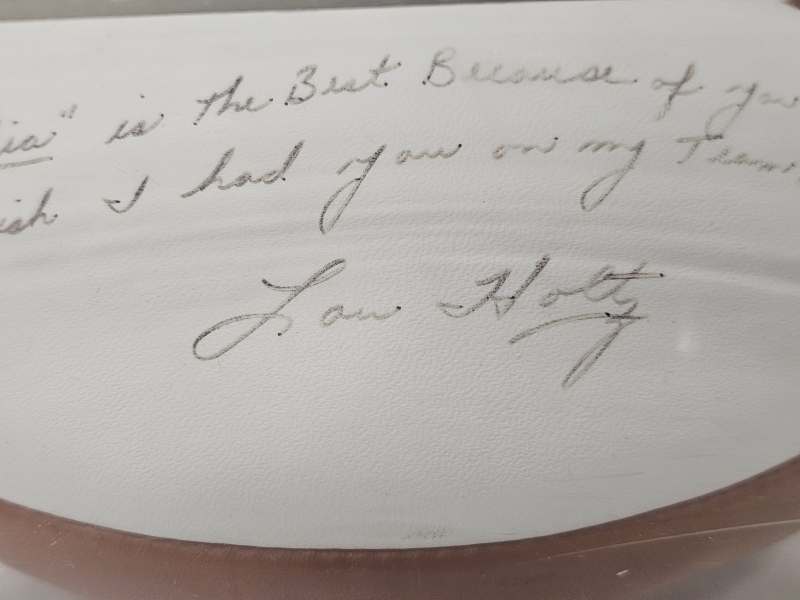 ia" is the Best Because of you
ish I had you on my Team,
Lou Holtz